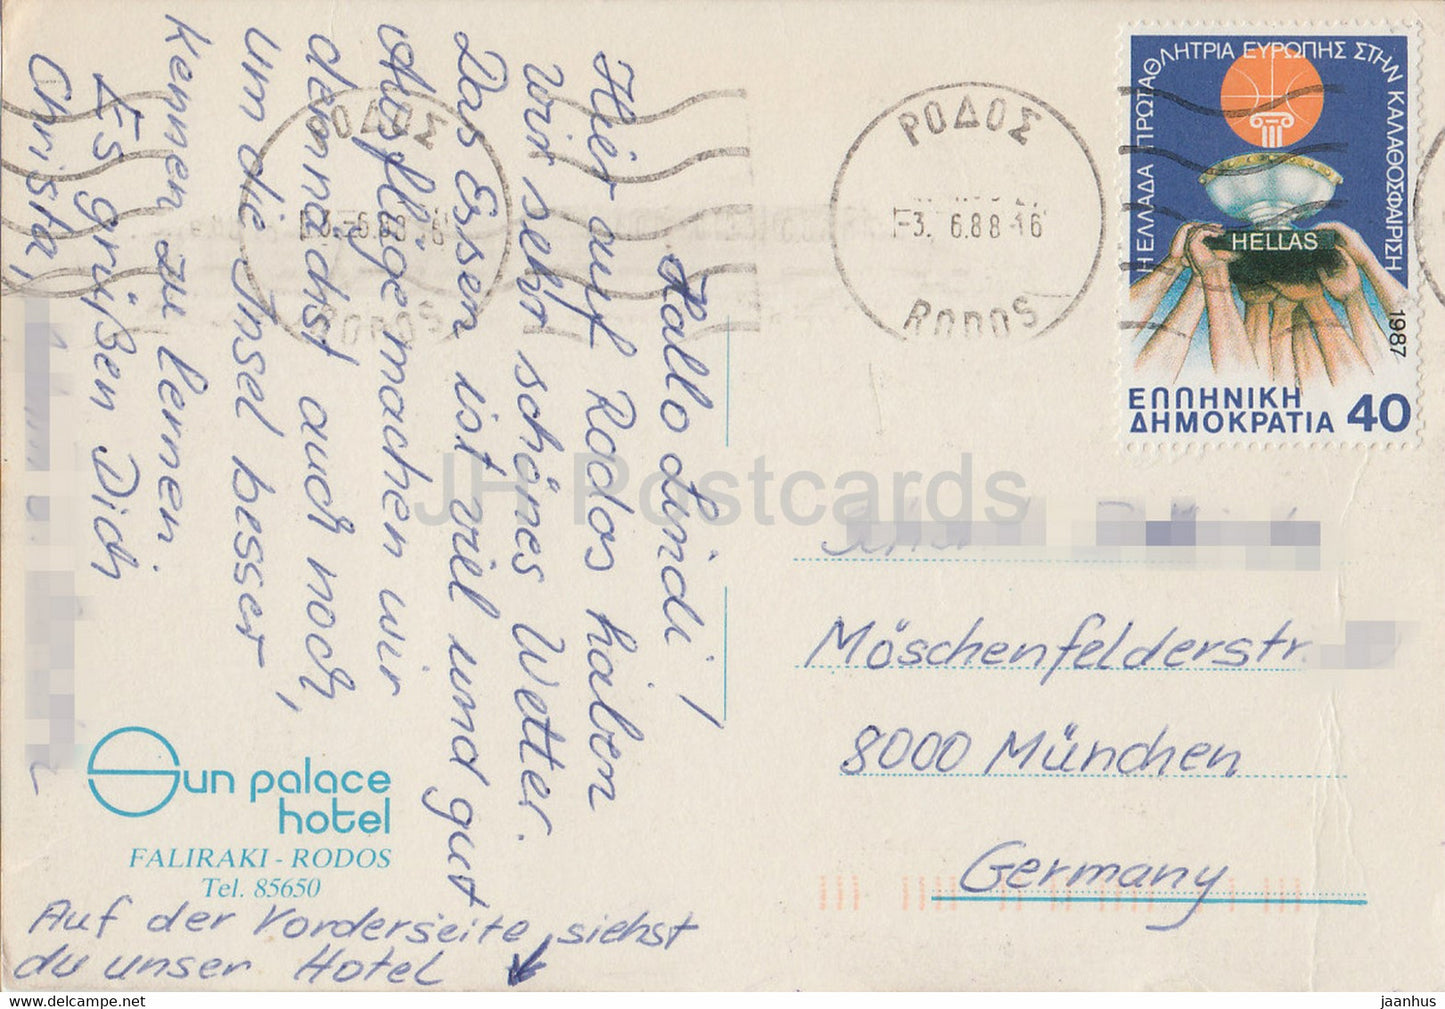 Hallo Lindi!
Hier auf Rodos haben
wir sehr schönes Wetter.
Das Essen ist viel und gut
Ausflüge machen wir
demnächst auch noch,
um die Insel besser
kennen zu lernen.
Es grüßen Dich
Christa,
Sun palace
hotel
FALIRAKI - RODOS
Tel. 85650
Auf der Vorderseite siehst
du unser Hotel
ΡΟΔΟΣ
-3. 6.88 16
RODOS
ΡΟΔΟΣ
-3. 6.88 16
RODOS
Η ΕΛΛΑΔΑ ΠΡΩΤΑΘΛΗΤΡΙΑ ΕΥΡΩΠΗΣ ΣΤΗΝ ΚΑΛΑΘΟΣΦΑΙΡΙΣΗ
HELLAS
1987
ΕΛΛΗΝΙΚΗ
ΔΗΜΟΚΡΑΤΙΑ 40
Möschenfelderstr.
8000 München
Germany
JH Postcards
jaanhus